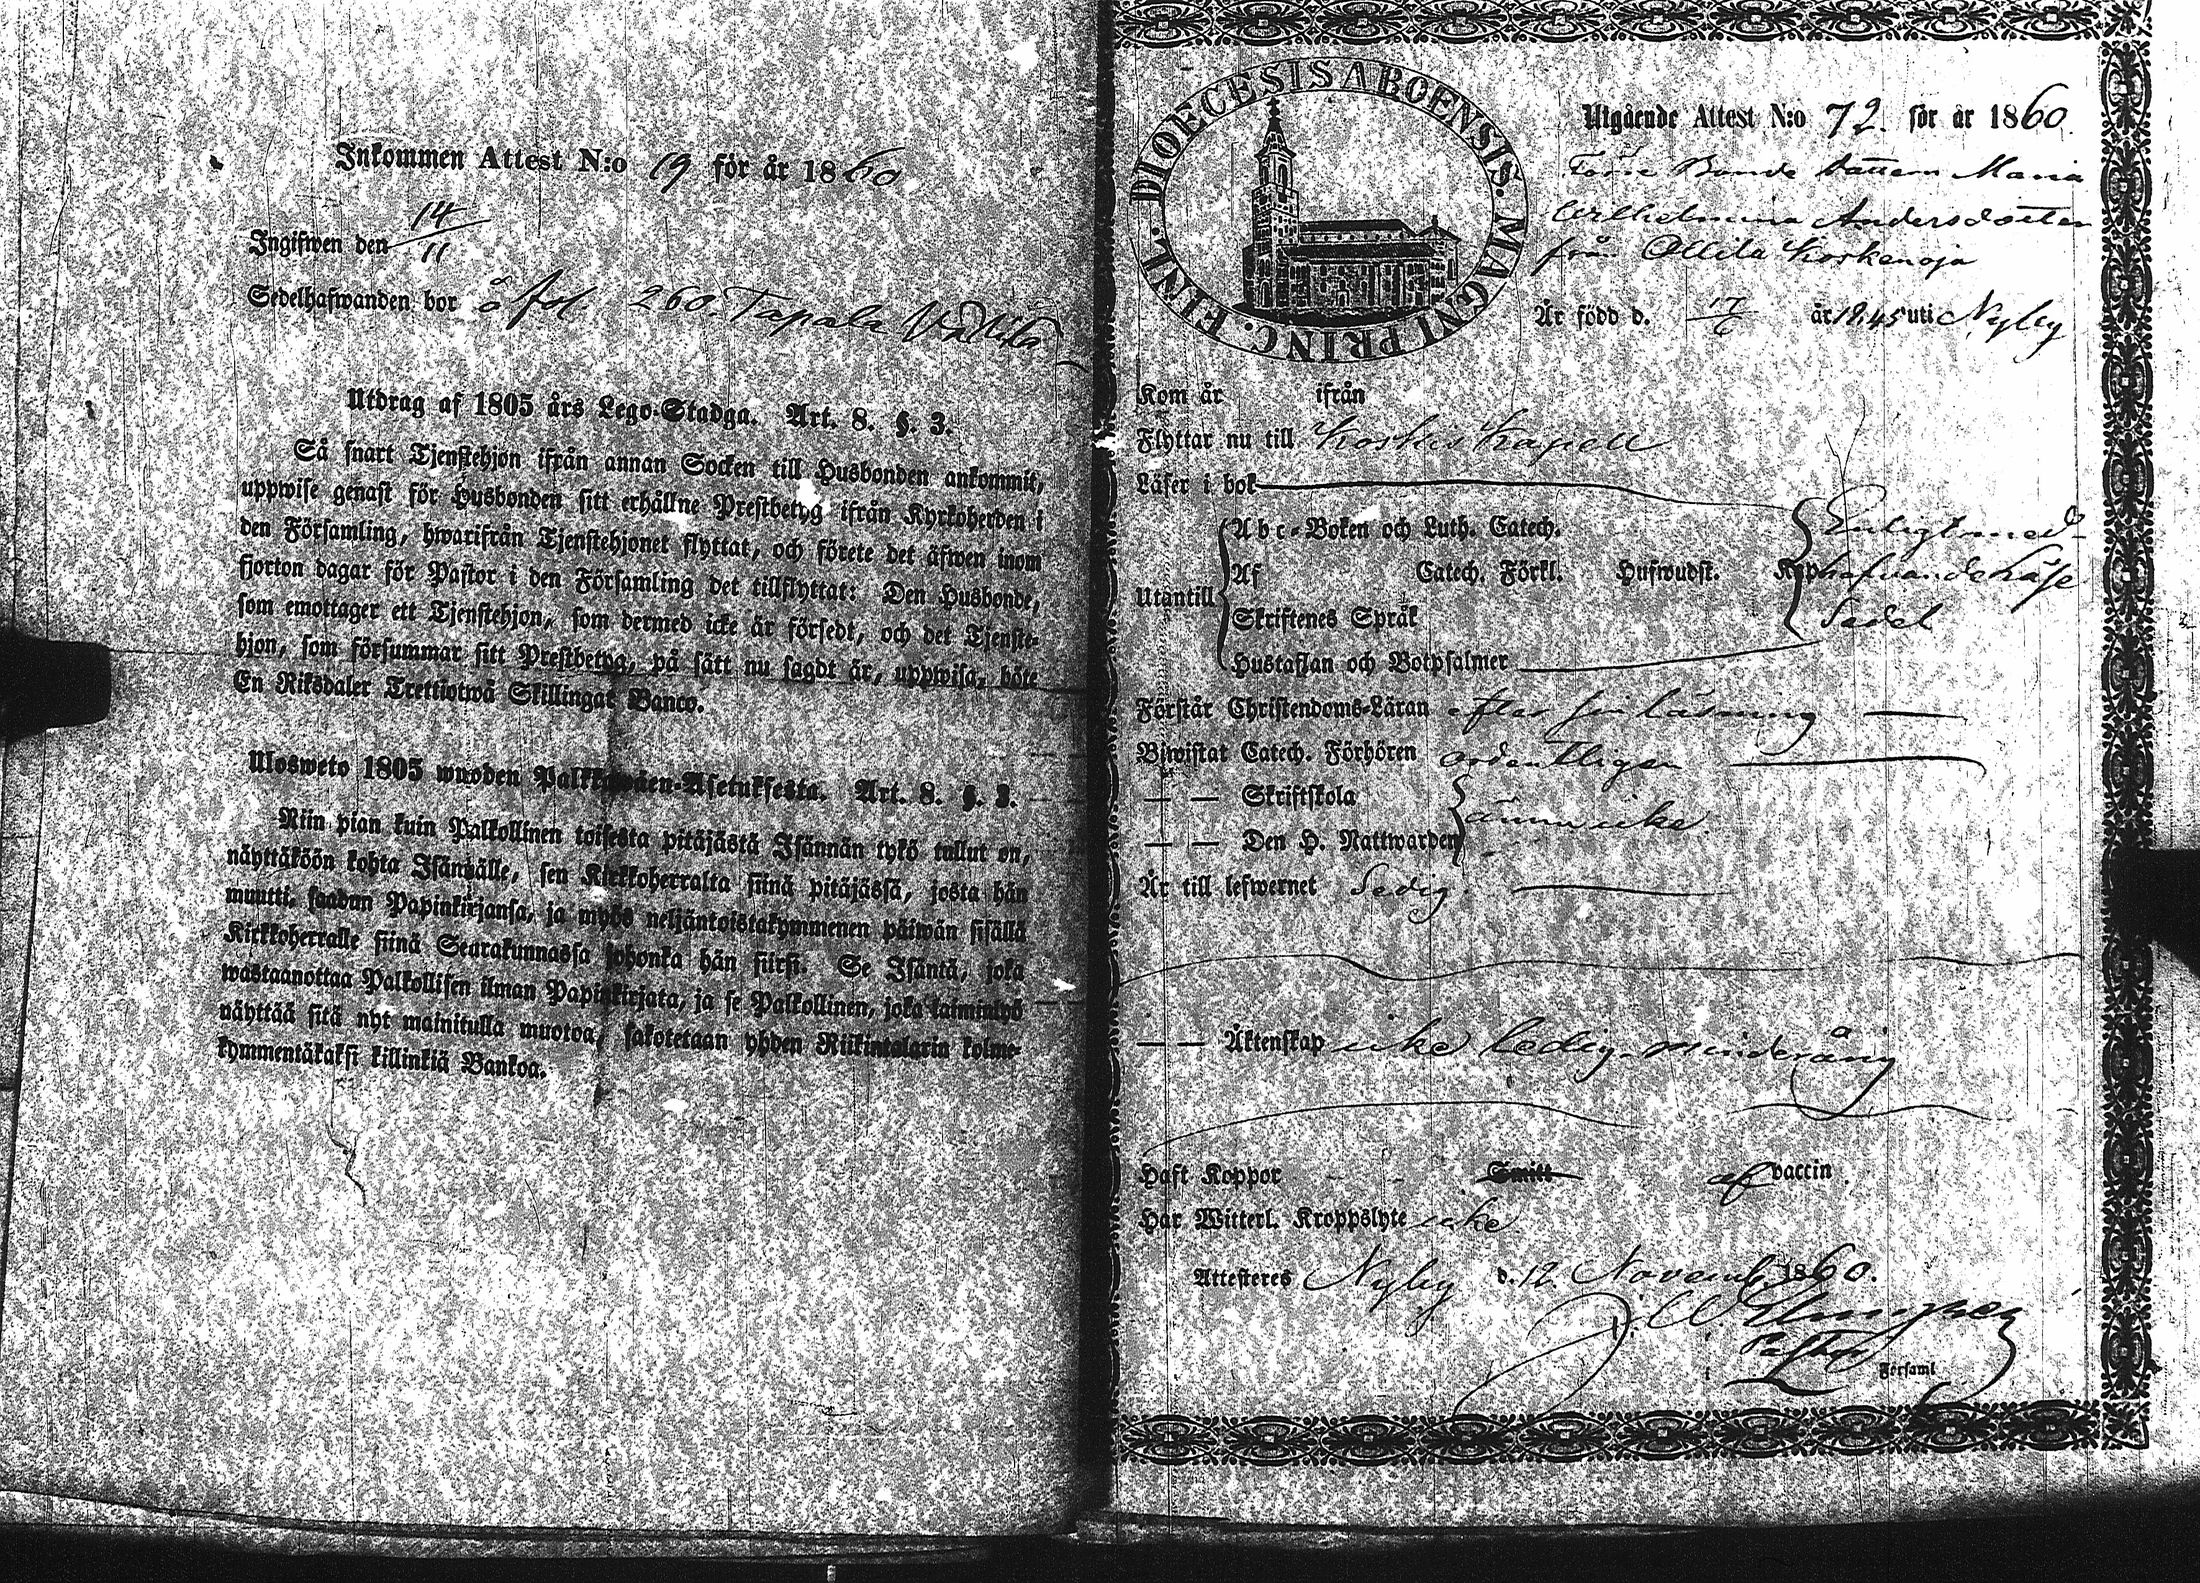 Inkommen Attest N:o 19 för år 1860
Ingifwen den 14/11
Sedelhafwanden bor å fol. 260. Tapala
Utdrag af 1805 års Lego-Stadga. Art. 8. §. 3.
Så snart Tjenstehjon ifrån annan Socken till Husbonden ankommit,
uppwise genast för Husbonden sitt erhållne Prestbetyg ifrån Kyrkoherden i
den Församling, hwarifrån Tjenstehjonet flyttat, och förete det äfwen inom
fjorton dagar för Pastor i den Församling det tillflyttat: Den Husbonde,
som emottager ett Tjenstehjon, som dermed icke är försedt, och det Tjenste-
hjon, som försummar sitt Prestbetyg, på sätt nu sagdt är, uppwisa, böte
En Riksdaler Trettiotwå Skillingar Banco.
Ulosweto 1805 wuoden Palkkawäen-Asetuksesta. Art. 8. §. 3.
Niin pian kuin Palkollinen toisesta pitäjästä Isännän tykö tullut on,
näyttäköön kohta Isännälle, sen Kirkkoherralta siinä pitäjässä, josta hän
muutti, saadun Papinkirjansa, ja myös neljäntoistakymmenen päiwän sisällä
Kirkkoherralle siinä Seurakunnassa johonka hän siirsi. Se Isäntä, joka
wastaanottaa Palkollisen ilman Papinkirjata, ja se Palkollinen, joka laiminlyö
näyttää sitä nyt mainitulla muotoa, sakotetaan yhden Riikintalarin kolme-
kymmentäkaksi killinkiä Bankoa.
DIOECESIS ABOENSIS. MAGNI PRINC. FINL.
Utgående Attest N:o 72. för år 1860.
Bonde dottern Maria
Wilhelmina Andersdotter
från Ollila Korkenoja
Är född d. 17/6 år 1845 uti Nyby
Kom år ifrån
Flyttar nu till Koskis Kapell
Läser i bok
Utantill
Abc-Boken och Luth. Catech. Enligt med-
Af Catech. Förkl. Hufwudst. hafvande läse
Skriftenes Språk Sedel
Hustaflan och Botpsalmer
Förstår Christendoms-Läran efter sin läsning
Biwistat Catech. Förhören ordentligen
— — Skriftskola
ännu icke.
— — Den H. Nattwarden
Är till lefwernet Sedig.
— — Äktenskap icke ledig minderårig
Haft Koppor Smitt af vaccin
Har Witterl. Kroppslyte icke
Attesteres Nyby d. 12 Novemb. 1860.
Pastor
i Församl